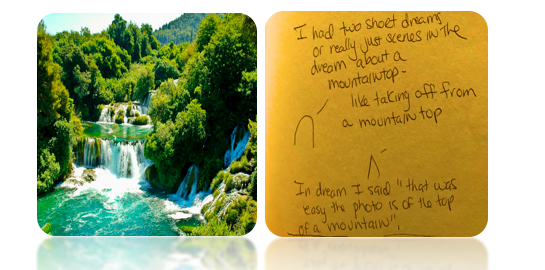 I had two short dreams
or really just scenes in the
dream about a
mountaintop-
like taking off from
a mountain top
In dream I said "that was
easy the photo is of the top
of a mountain".